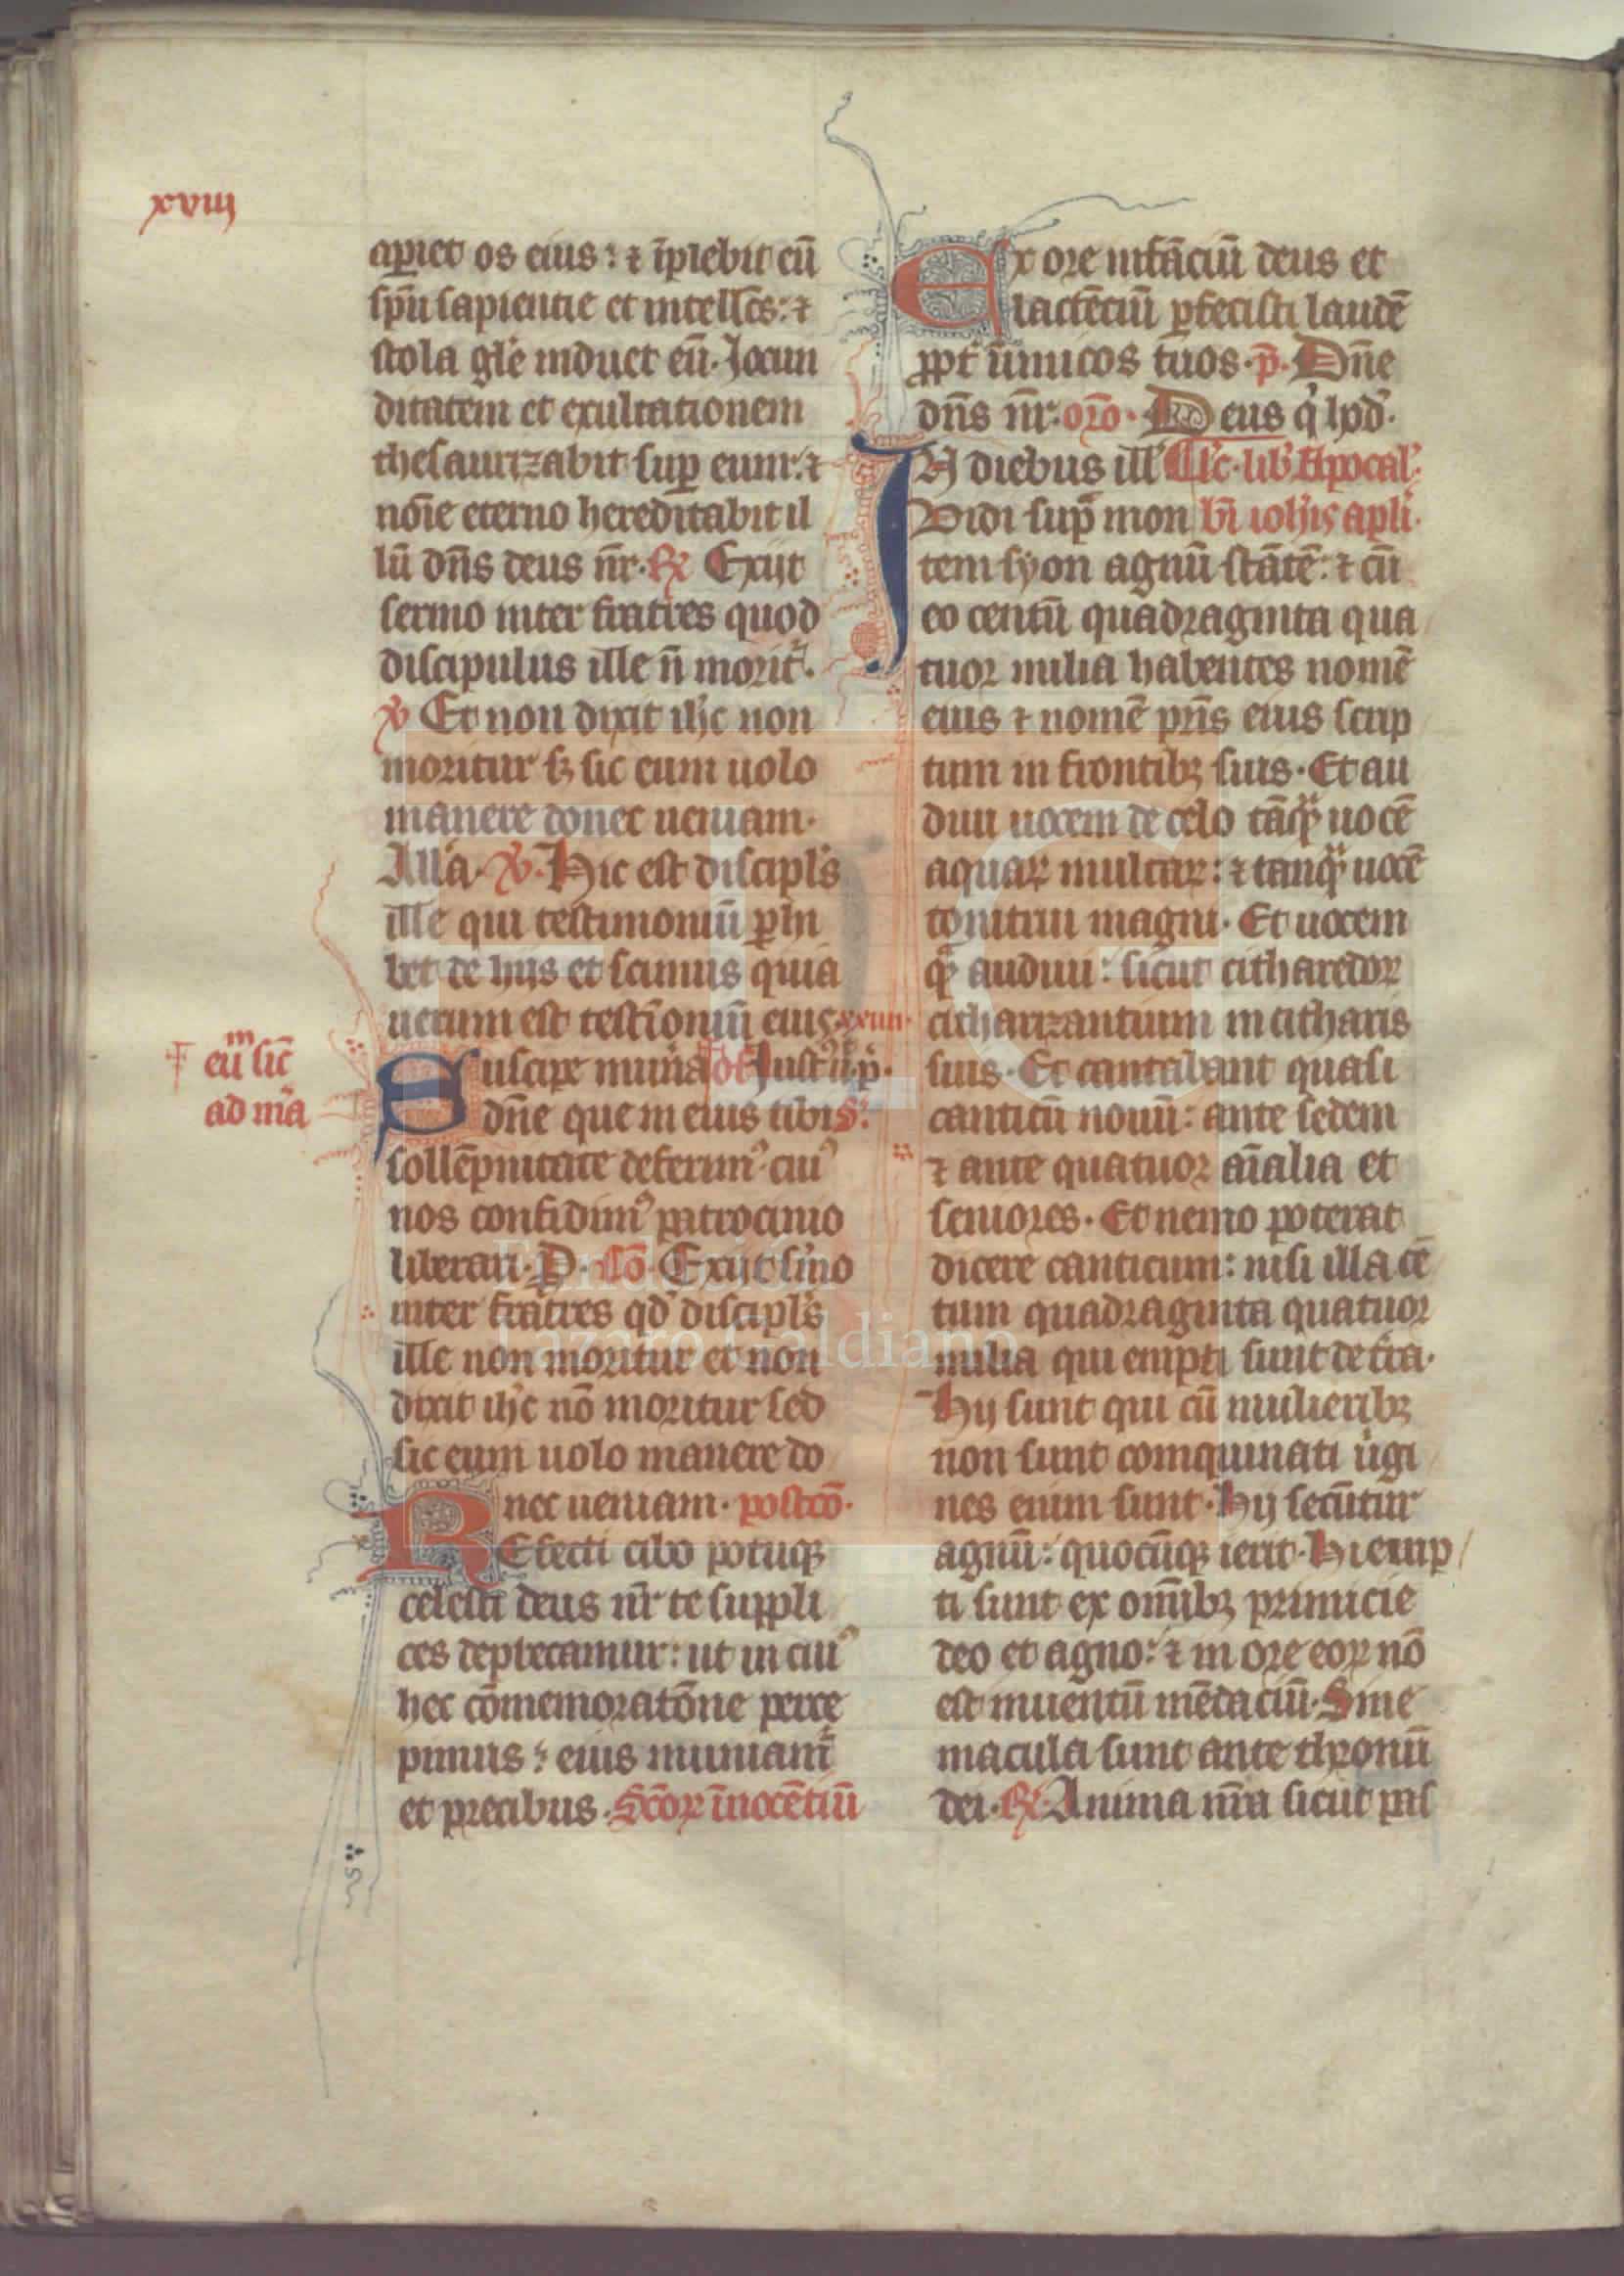 xviij
aꝑiet os eius : ⁊ īplebit eū
spū sapientie et intellc̄s : ⁊
stola gl'e induet eū . Jocun
ditatem et exultationem
thesaurizabit suꝑ eum : ⁊
nōie eterno hereditabit il
lū dn̄s deus nr̄ . ℟ Exijt
sermo inter fratres quod
discipulus ille n̄ morit᷑ .
℣ Et non dixit ih̄c non
moritur sꝫ sic eum uolo
manere donec ueniam .
All'a . ℣ . Hic est discipl's
ille qui testimoniū ꝑhi
bet de hijs et scimus quia
uerum est testīoniū eius . xxiiii .
Suscipe mun̄a of Iust' ū . p .
dn̄e que in eius tibi s̄ :
✝ eū sic̄
m
ad mīa
sollēpnitate deferimꝰ . cuiꝰ
nos confidimꝰ patrocinio
liberari . P . cō . Exijt s'mo
inter fratres qd' discipl's
ille non moritur et non
dixit ih̄c nō moritur sed
sic eum uolo manere do
nec ueniam . postcō .
REfecti cibo potuqꝫ
celesti deus nr̄ te suppli
ces deprecamur : ut in cuiꝰ
hec cōmemoratōne perce
pimus : eius muniam᷑
et precibus . Sc̄oꝝ īnocētiū
Ex ore infāciū deus et
lactēciū ꝑfecisti laudē
ꝓpt' īimicos tuos . p̄ . Dn̄e
dn̄s nr̄ . oro . Deus q' hod' .
IN diebus ill' Lc̄ . lib' Apocal' .
Vidi supͣ mon bī ioh'is apl'i .
tem syon agnū stātē : ⁊ cū
eo centū quadraginta qua
tuor milia habentes nomē
eius ⁊ nomē pr̄is eius scrip
tum in frontibꝫ suis . Et au
diui uocem de celo tāqͣꝫ uocē
aquaꝝ multaꝝ : ⁊ tanqͣꝫ uocē
tonitrui magni . Et uocem
qͣꝫ audiui : sicut citharedoꝝ
citharizantium in citharis
suis . Et cantabant quasi
canticū nouū : ante sedem
⁊ ante quatuor aīalia et
seniores . Et nemo poterat
dicere canticum : nisi illa cē
tum quadraginta quatuor
milia qui empti sunt de t'ra .
Hij sunt qui cū mulieribꝫ
non sunt coinquinati u'gi
nes enim sunt . Hij secūtur
agnū : quocūqꝫ ierit . Hi emp
ti sunt ex om̄ibꝫ primicie
deo et agno : ⁊ in ore eoꝝ nō
est inuentū mēdaciū . Sine
macula sunt ante thronū
dei . ℟ Anima nr̄a sicut pas
Fundación
Lázaro Galdiano